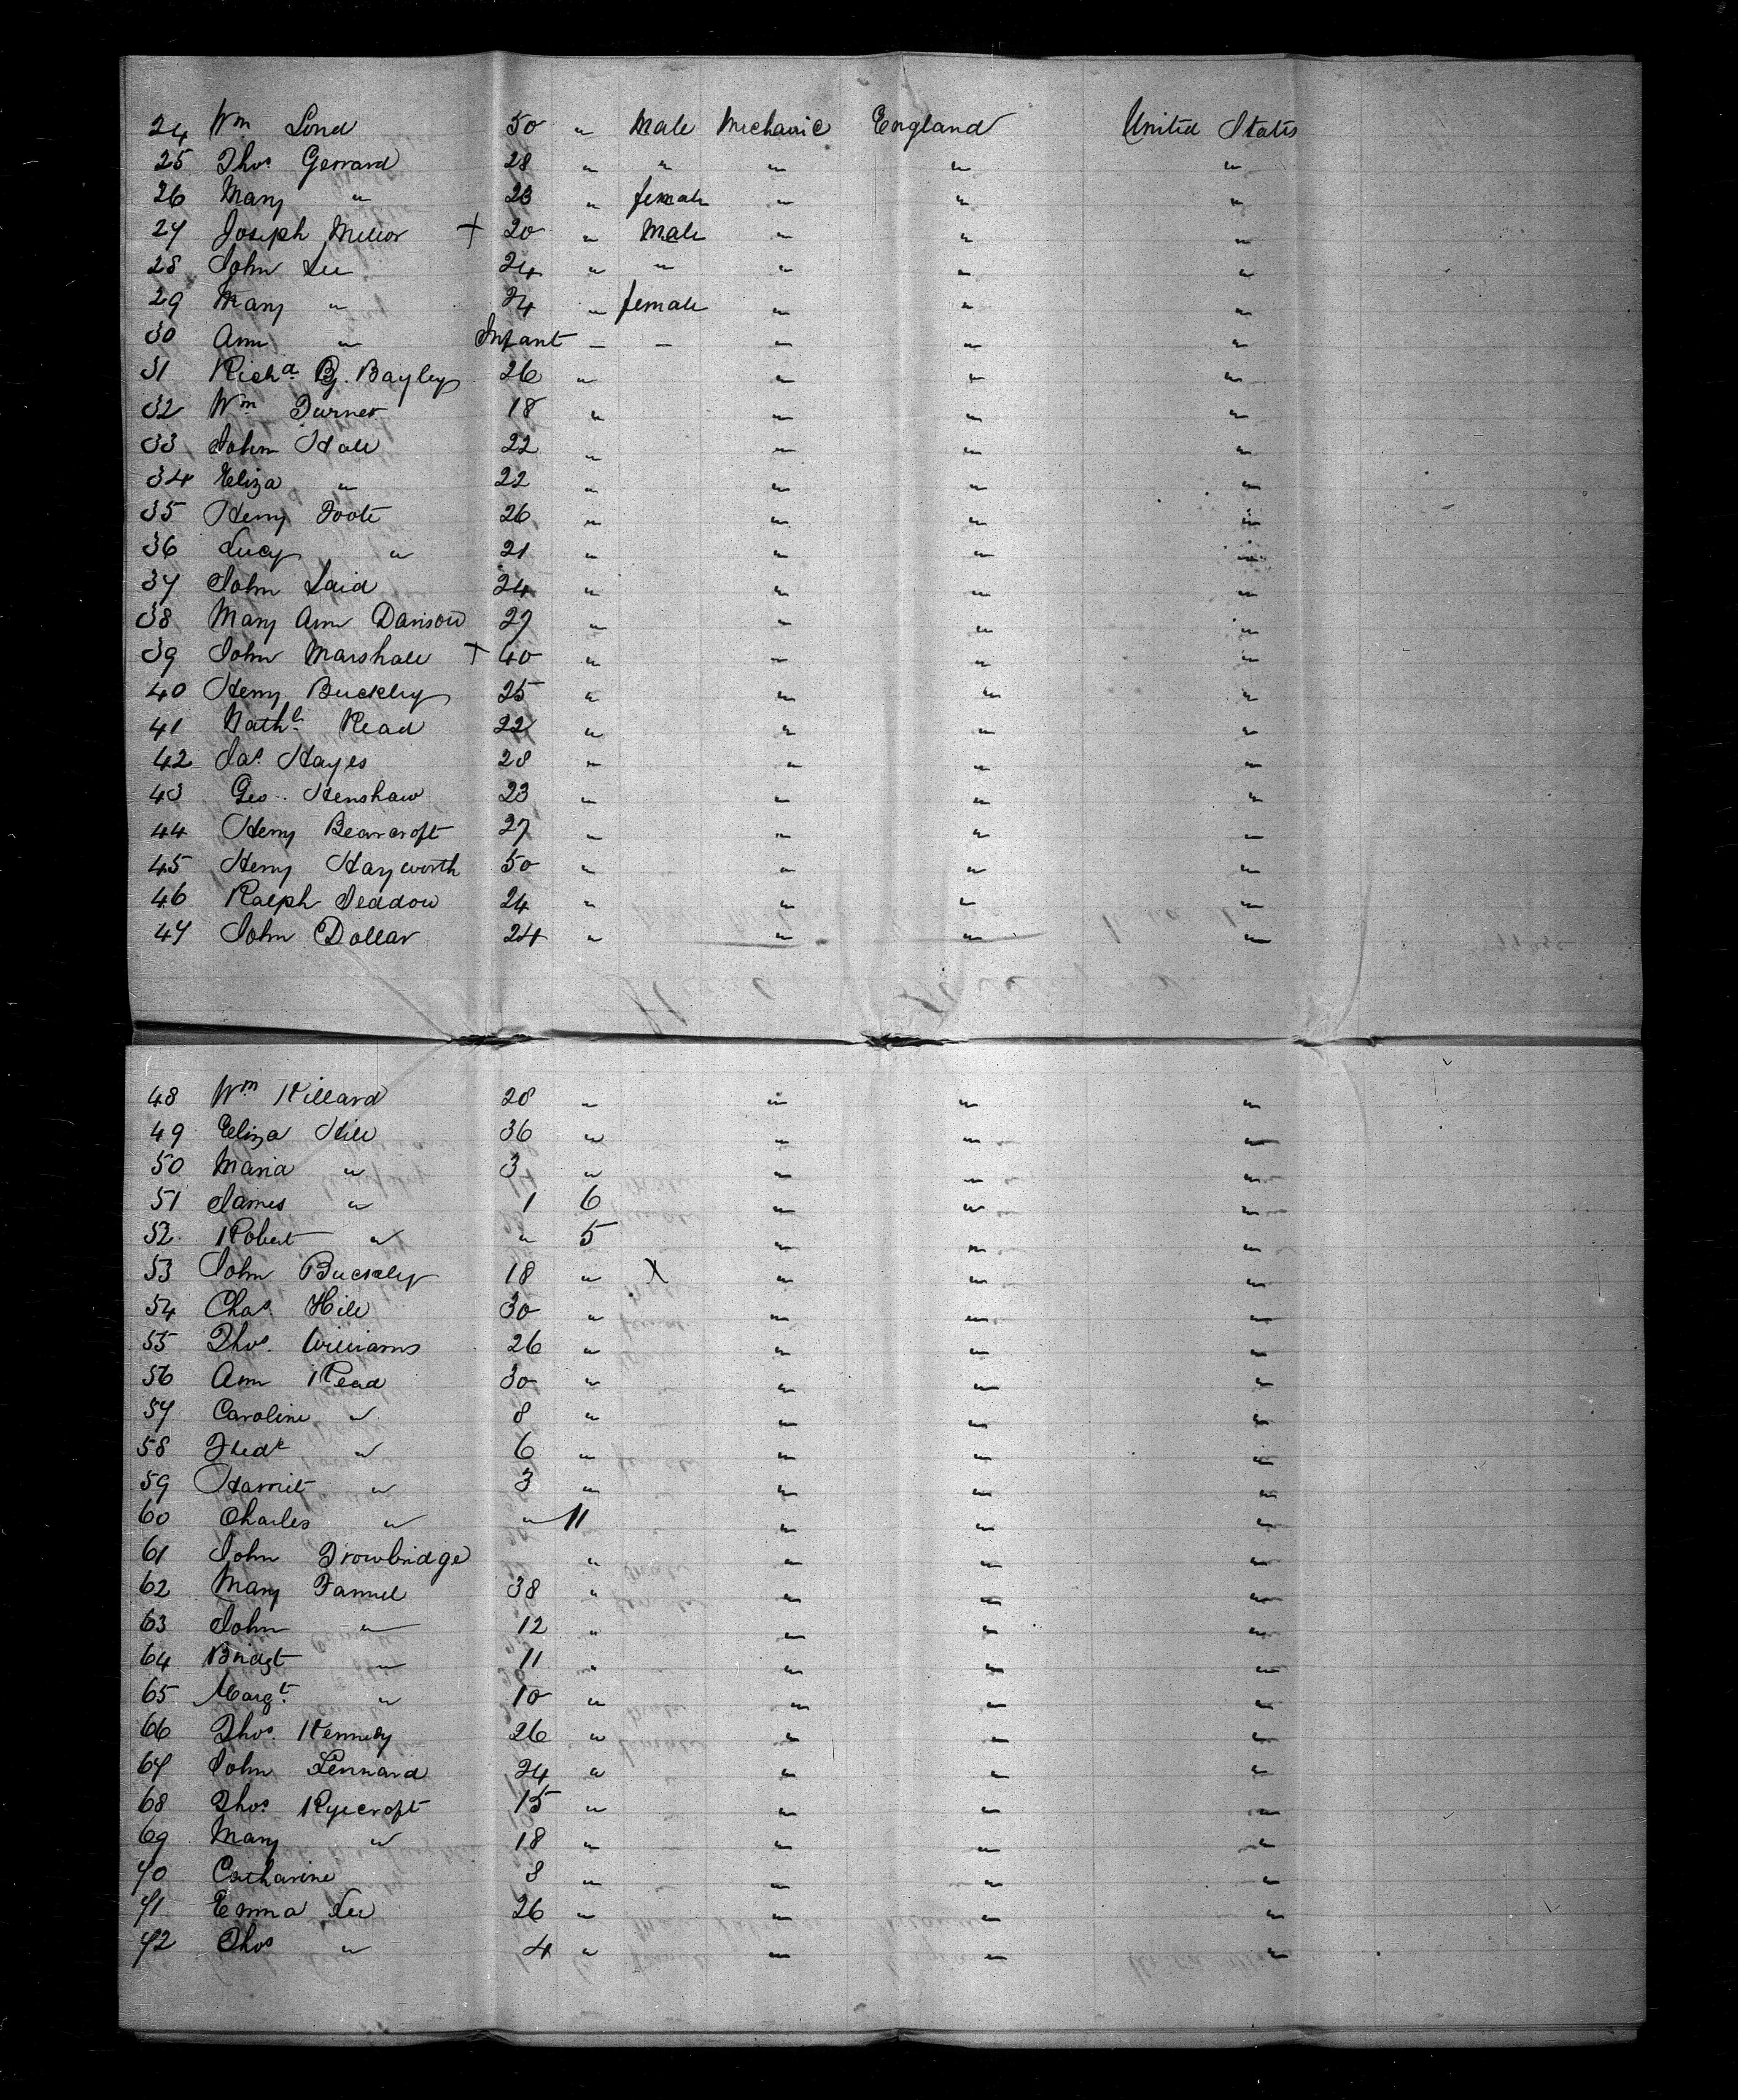 24 Wm Lond 50 " Male Mechanic England United States
25 Thos Gerrard 28 " " " " "
26 Mary " 23 " female " " "
27 Joseph Mellor + 20 " Male " " "
28 John Lee 24 " " " " "
29 Mary " 24 " female " " "
30 Ann " Infant " " " " "
31 Richd G. Bayley 26 " " " "
32 Wm Turner 18 " " " "
33 John Hall 22 " " " "
34 Eliza " 22 " " " "
35 Henry Foote 26 " " " "
36 Lucy " 21 " " " "
37 John Laid 24 " " " "
38 Mary Ann Danson 27 " " " "
39 John Marshall + 40 " " " "
40 Henry Buckley 25 " " " "
41 Nathl Read 22 " " " "
42 Jas Hayes 28 " " " "
43 Geo. Henshaw 23 " " " "
44 Henry Bearcroft 27 " " " "
45 Henry Hayworth 50 " " " "
46 Ralph Seddow 24 " " " "
47 John Dollar 24 " " " "
48 Wm Killard 28 " " " "
49 Eliza Hill 36 " " " "
50 Maria " 3 " " " "
51 James " 1 6 " " "
52 Robert " " 5 " " "
53 John Buckley 18 " X " " "
54 Chas Hill 30 " " " "
55 Thos. Williams 26 " " " "
56 Ann Read 30 " " " "
57 Caroline " 8 " " " "
58 Fredk " 6 " " " "
59 Harriet " 3 " " " "
60 Charles " " 11 " " "
61 John Trowbridge " " " "
62 Mary Farrel 38 " " " "
63 John " 12 " " " "
64 Bridgt " 11 " " " "
65 Margt " 10 " " " "
66 Thos. Kennedy 26 " " " "
67 John Lennard 24 " " " "
68 Thos Ryecroft 15 " " " "
69 Mary " 18 " " " "
70 Catharine 8 " " " "
71 Emma Lee 26 " " " "
72 Thos " 4 " " " "